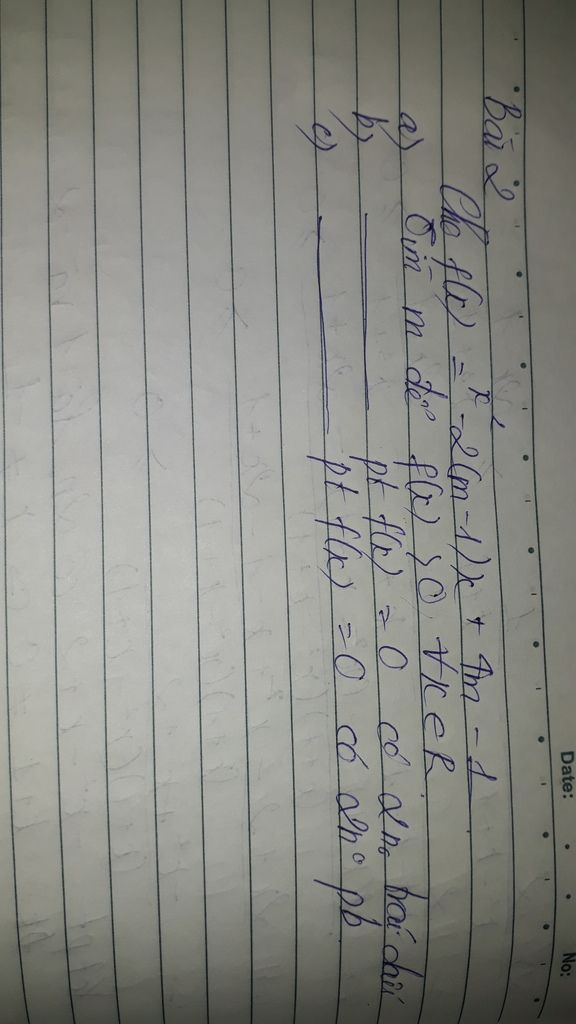 Date: No:
Bài 2
Cho f(x) = x² - 2(m-1)x + 4m - 1
a) Tìm m để f(x) > 0 ∀x ∈ R
b) ——— pt f(x) = 0 có 2 no trái dấu
c) ——— pt f(x) = 0 có 2 no pb